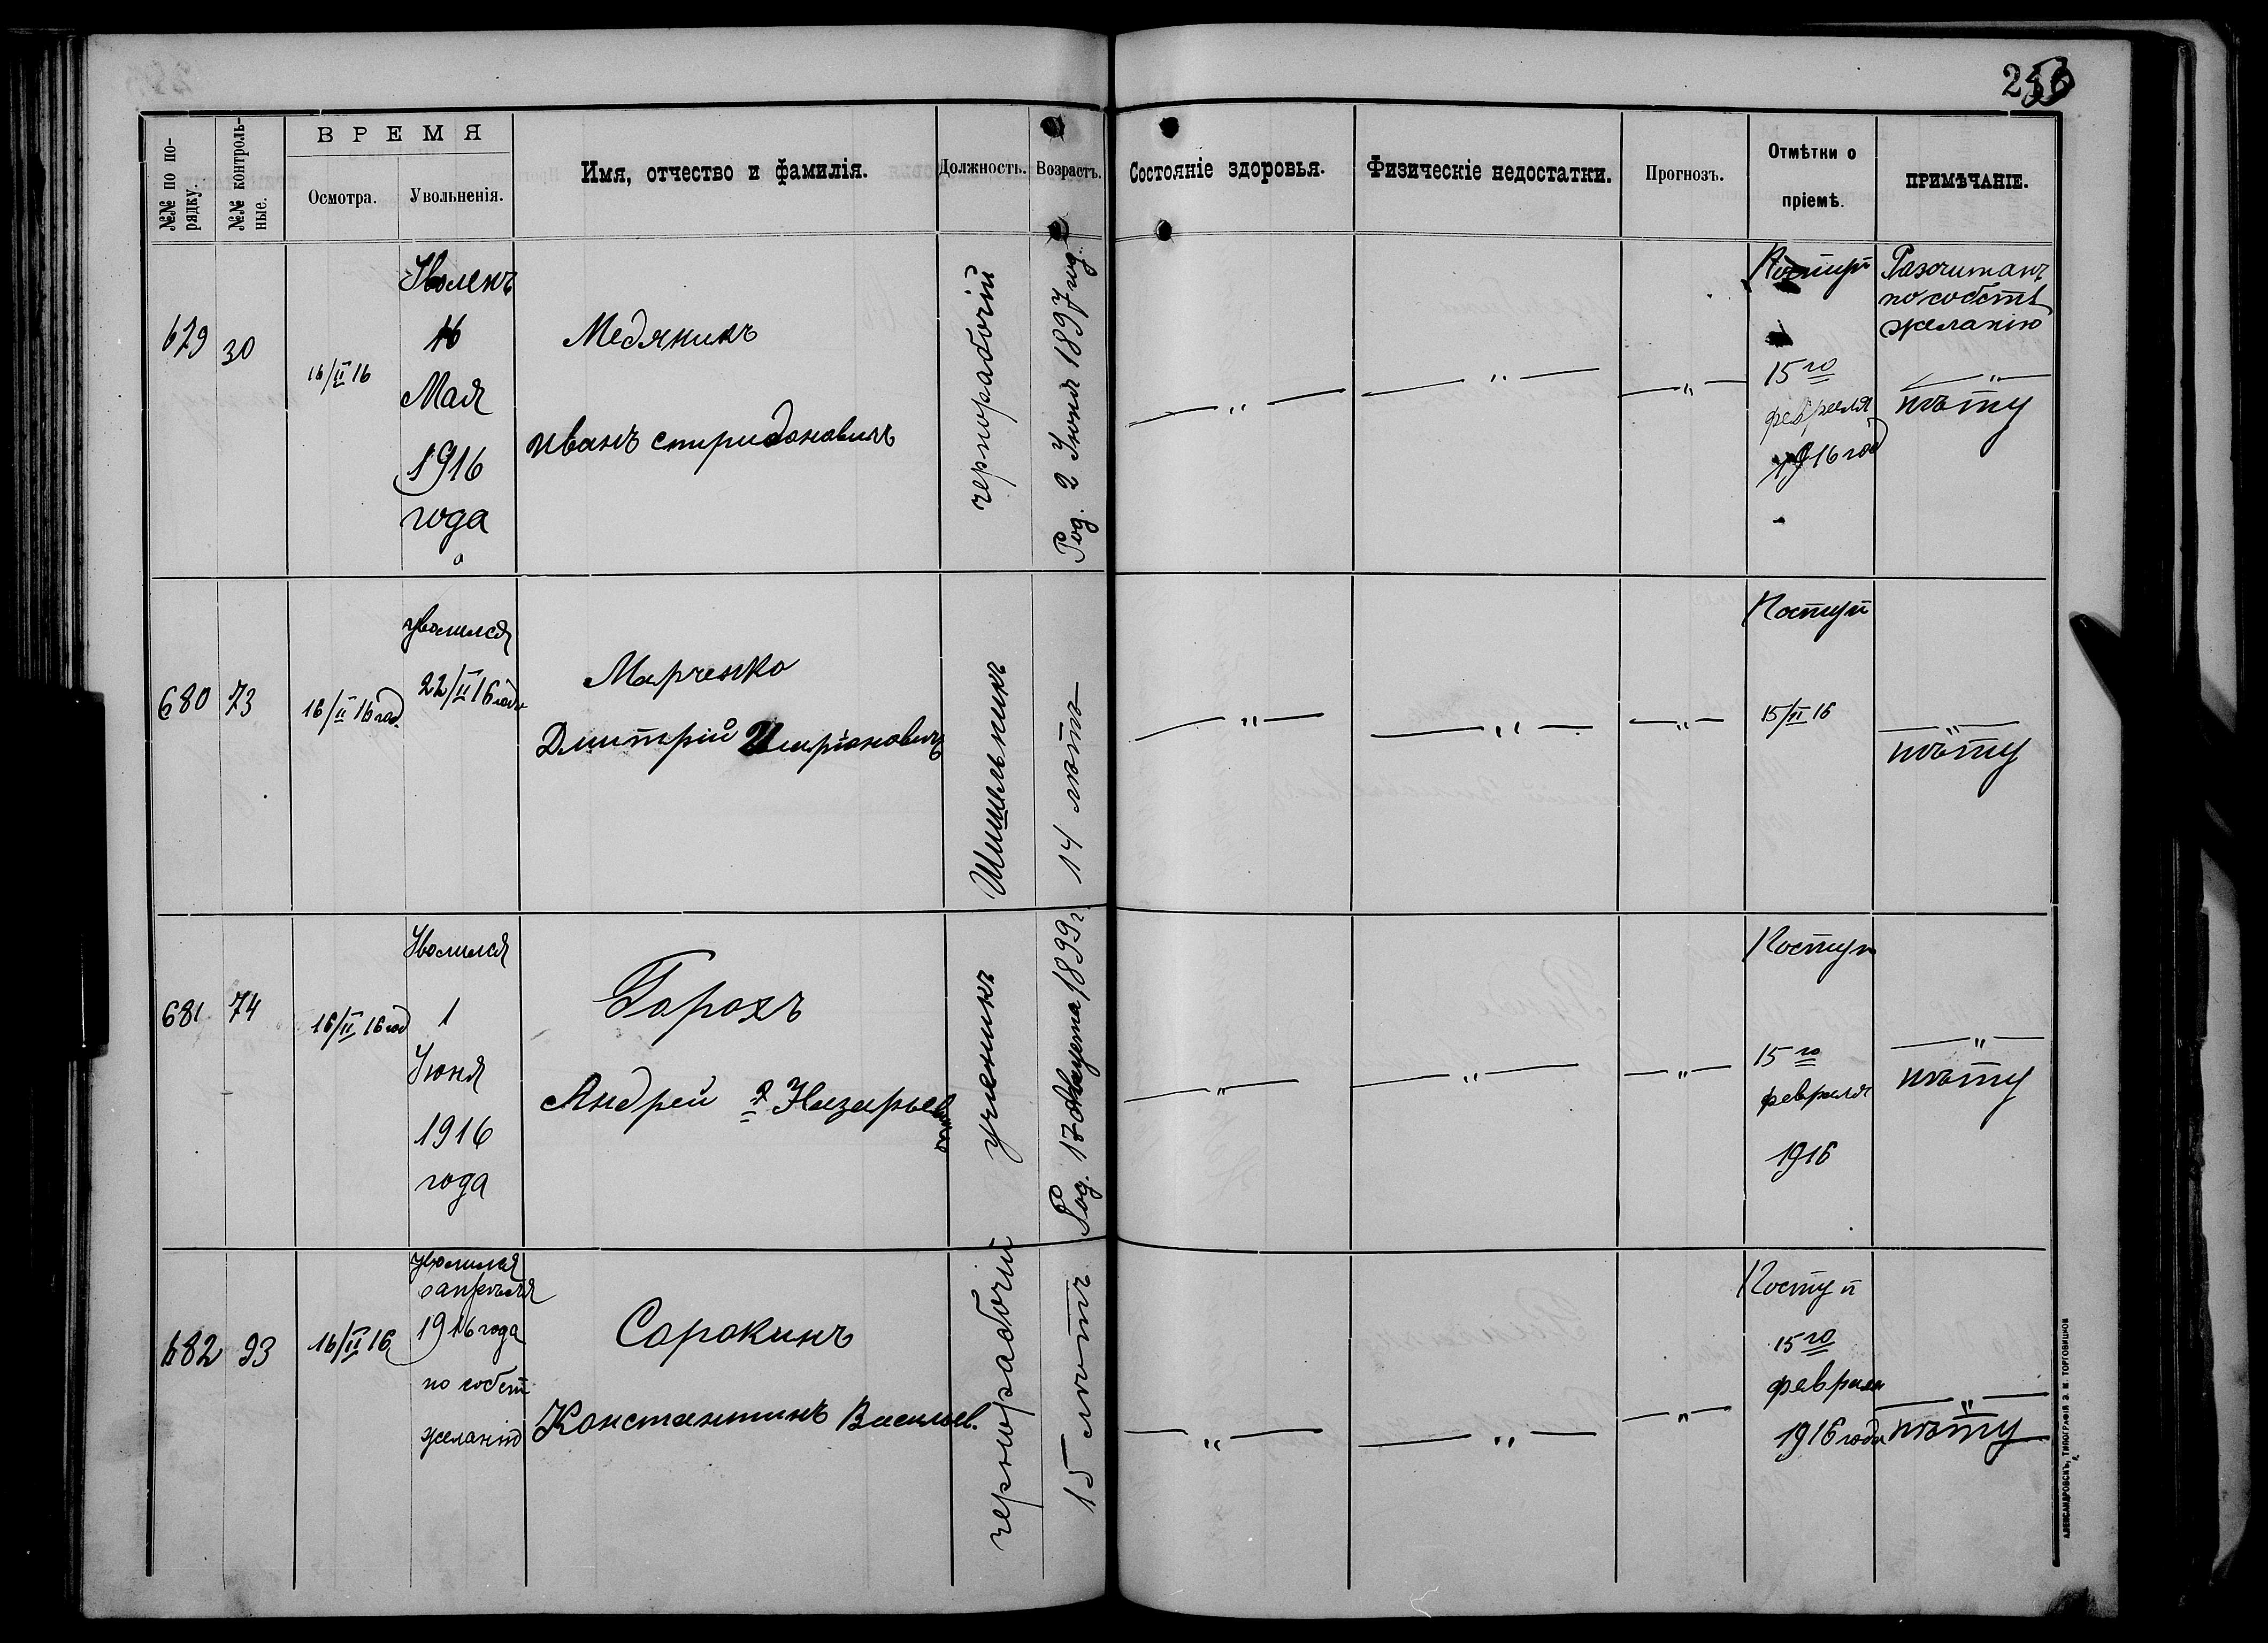 256
№№ по по-
рядку.
№№ контроль-
ные.
ВРЕМЯ
Осмотра.
Увольненія.
Имя, отчество и фамилія.
Должность.
Возрастъ.
Состояніе здоровья.
Физическіе недостатки.
Прогнозъ.
Отмѣтки о
пріемѣ.
ПРИМѢЧАНІЕ.
679
30
16/II 16
Уволенъ
16
Мая
1916
года
Медяникъ
иванъ спиридоновичъ
чернорабочій
Род. 2 Июня 1897 год.
—„—
—„—
—„—
15го
февраля
1916 год
Разсчитанъ
по собств
желанію
—„—
нѣту
680
73
16/II 16 год.
уволился
22/II 16 года
Марченко
Дмитрій
Шишельникъ
14 лѣтъ
—„—
—„—
—„—
Поступ
15/II 16
—„—
нѣту
681
74
16/II 16 год
Уволился
1
Июня
1916
года
Горохъ
Андрей Назарьев
ученикъ
Род. 17 Августа 1899 г.
—„—
—„—
—„—
Поступ
15го
февраля
1916
—„—
нѣту
682
93
16/II 16
уволился
апрѣля
1916 года
по собст
желанію
Сорокинъ
Константинъ Васильев.
чернорабочій
15 лѣтъ
—„—
—„—
—„—
Поступ
15го
февраля
1916 года
—„—
нѣту
АЛЕКСАНДРОВСКЪ, ТИПОГРАФІЯ Э. М. ТОРГОВИЦКОЙ